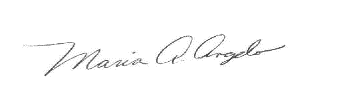 Maria A. Angelo